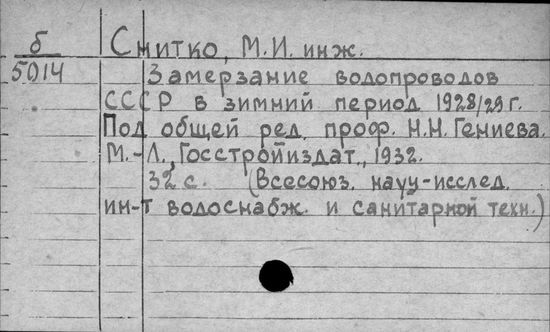 б Снитко, М.И. инж.
5014 Замерзание водопроводов
СССР в зимний период 1928/29 г.
Под общей ред. проф. Н.Н. Гениева.
М.-Л., Госстройиздат., 1932.
32 с. (Всесоюз. науч-исслед.
ин-т водоснабж. и санитарной техн.)